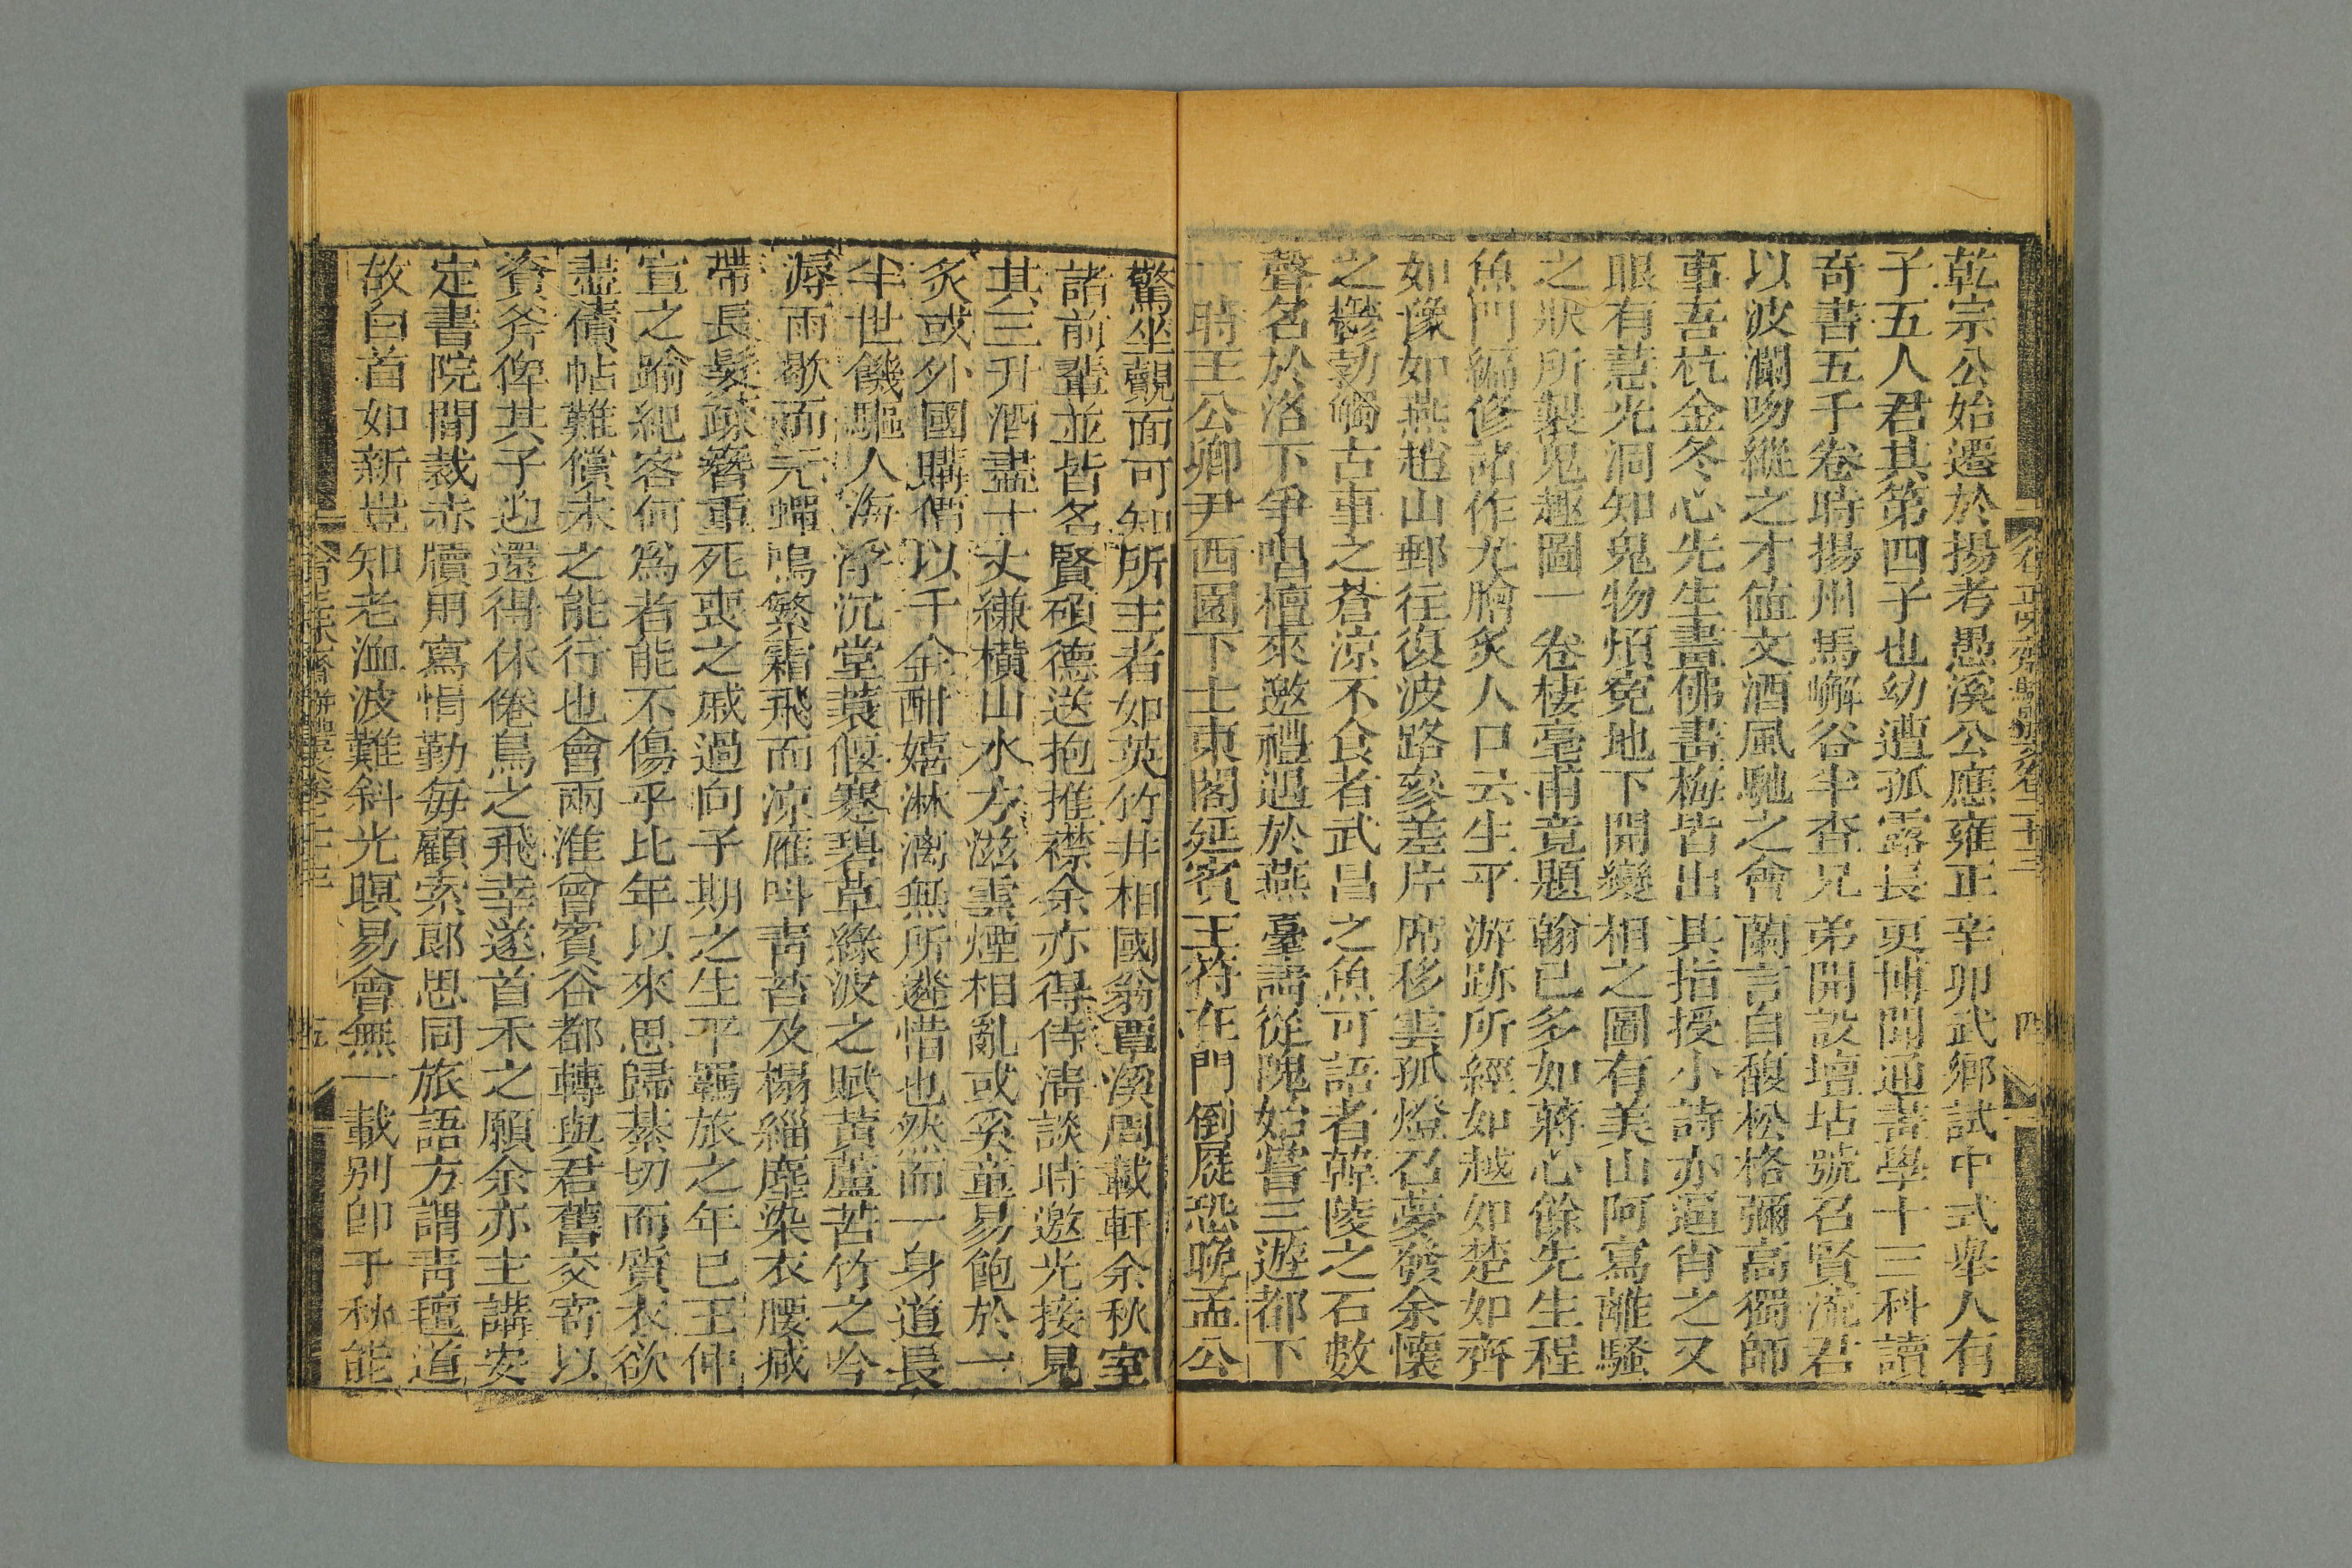 乾宗公始遷於揚考愚溪公應雍正辛卯武鄉試中式舉人有
子五人君其第四子也幼遭孤露長更博聞通書學十三科讀
奇書五千卷時揚州馬嶰谷半查兄弟開設壇坫號召賢流君
以波瀾吻縱之才值文酒風馳之會蘭言自馥松格彌高獨師
事吾杭金冬心先生畫佛畫梅皆出其指授小詩亦逼肖之又
眼有慧光洞知鬼物煩冤地下開變相之圖有美山阿寫離騷
之狀所製鬼趣圖一卷棲毫甫竟題翰已多如蔣心餘先生程
魚門編修諸作尤膾炙人口云生平游跡所經如越如楚如齊
如豫如燕趙山郵往復波路參差片席移雲孤燈召夢發余懷
之鬱勃觸古事之蒼涼不食者武昌之魚可語者韓陵之石數
聲名於洛下爭唱檀來邀禮遇於燕臺請從隗始嘗三遊都下
一時王公卿尹西園下士東閣延賓王符在門倒屣恐晚孟公
驚坐覿面可知所主者如英竹井相國翁覃溪周載軒余秋室
諸前輩並皆名賢碩德送抱推襟余亦得侍淸談時邀光接見
其三升酒盡十丈縑橫山水方滋雲煙相亂或奚童易飽於一
炙或外國購償以千金酣嬉淋漓無所遴惜也然而一身道長
半世饑驅人海浮沉堂蓑偃蹇碧草綠波之賦黃蘆苦竹之吟
潯雨歇而元蟬鳴繁霜飛而涼雁叫靑苔及榻緇塵染衣腰減
帶長髮疎簪重死喪之戚過向子期之生平羈旅之年已王仲
宣之踰紀客何爲者能不傷乎比年以來思歸綦切而質衣欲
盡債帖難償未之能行也會兩淮曾賓谷都轉與君舊交寄以
資斧俾其子迎還得休倦鳥之飛幸遂首禾之願余亦主講安
定書院間裁赤牘用寫悁勤每顧索郞思同旅語方謂靑氊道
故白首如新豈知老洫波難斜光暝易會無一載別卽千秋能